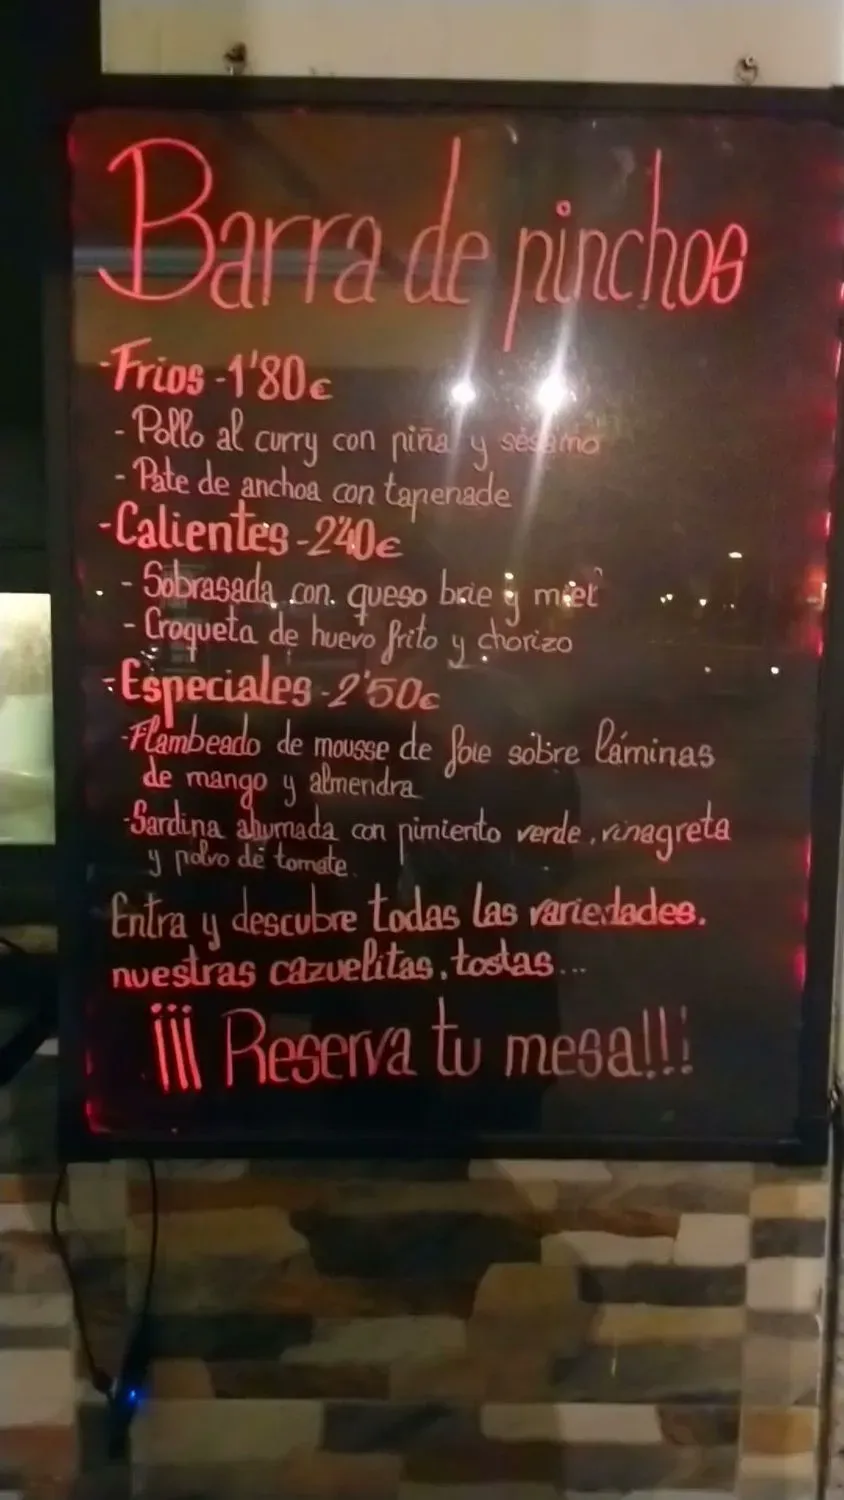 Barra de pinchos
-Frios -1'80€
- Pollo al curry con piña y sésamo
- Pate de anchoa con tapenade
-Calientes -2'40€
- Sobrasada con queso brie y miel
- Croqueta de huevo frito y chorizo
-Especiales -2'50€
-Flambeado de mousse de foie sobre láminas
de mango y almendra
-Sardina ahumada con pimiento verde, vinagreta
y polvo de tomate.
Entra y descubre todas las variedades.
nuestras cazuelitas, tostas...
¡¡¡ Reserva tu mesa!!!